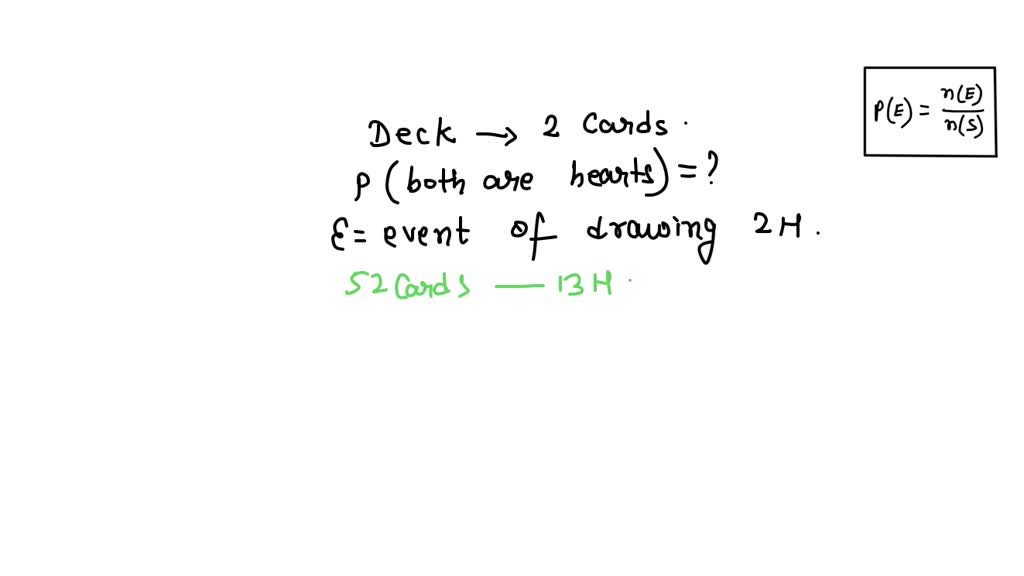 Deck → 2 Cards.
P(both are hearts) = ?
E = event of drawing 2H.
52 Cards — 13H.
P(E) = n(E)/n(S)